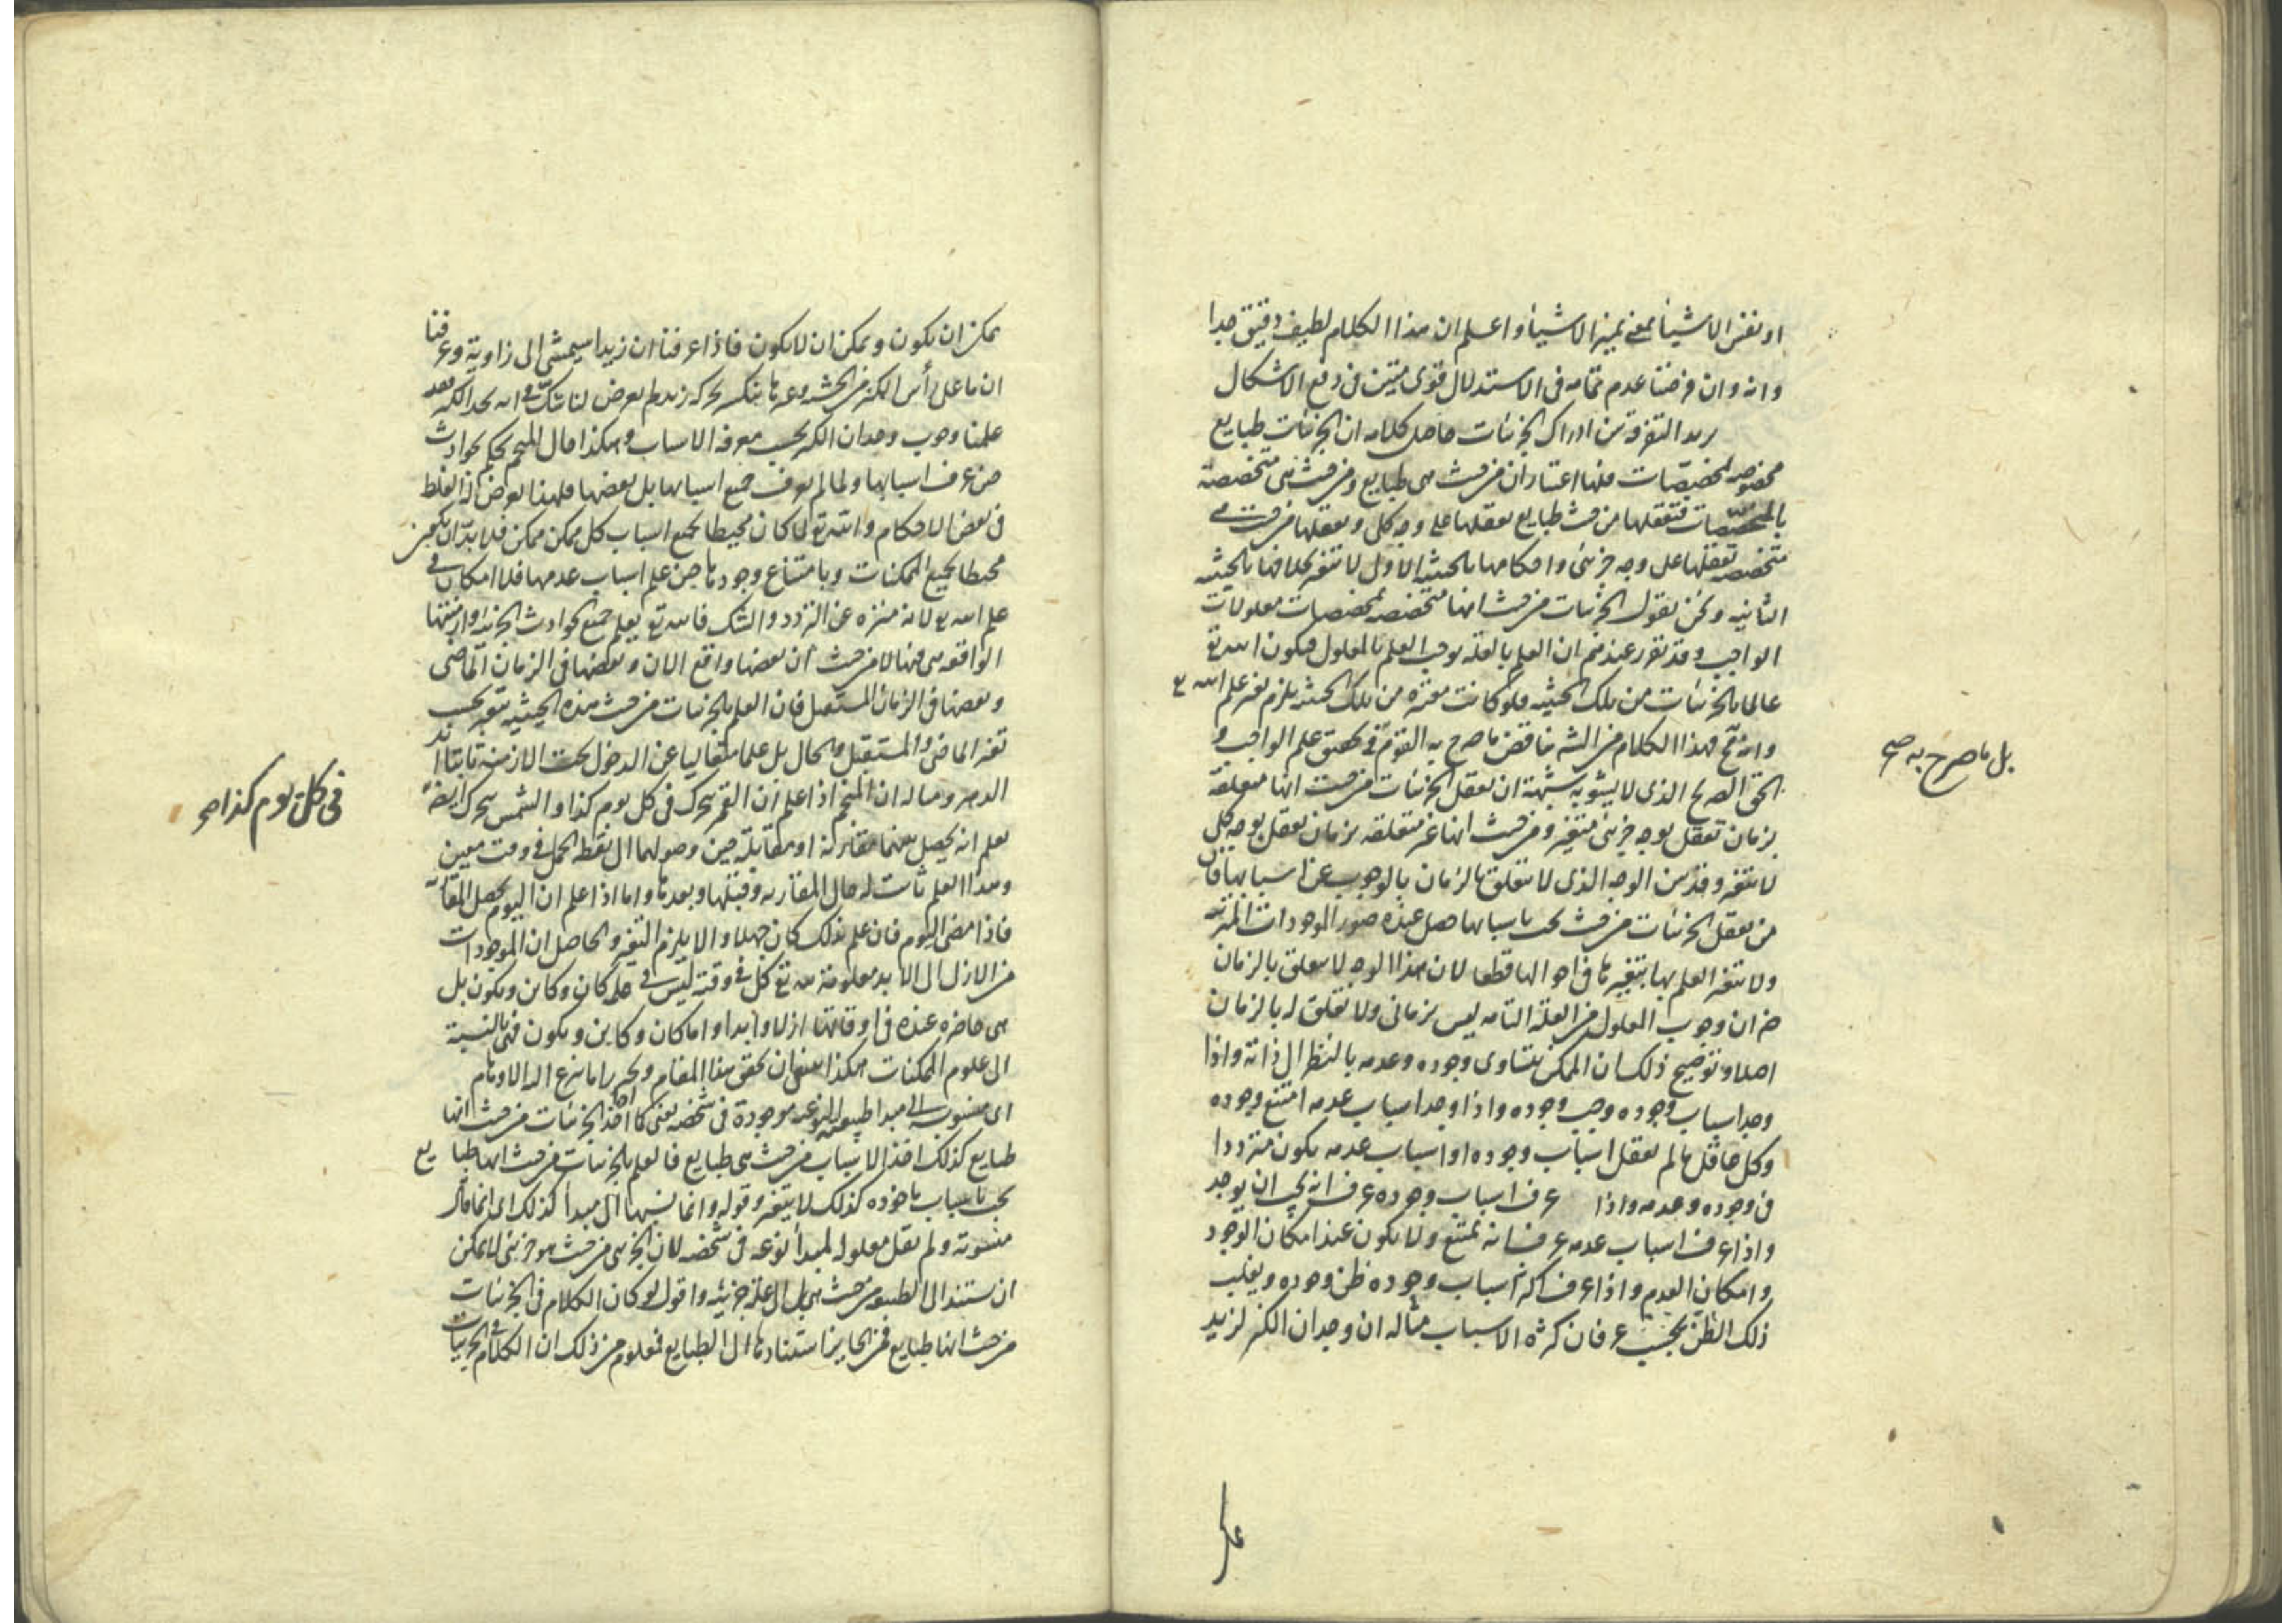 او نفس الاشياء بمعنى تميز الاشياء واعلم ان هذا الكلام لطيف دقيق جدا
وانه وان فرضنا عدم تمامه فى الاستدلال قوى متين فى دفع الاشكال
يريد التفرقة بين ادراك الجزئيات حاصل كلامه ان الجزئيات طبايع
مخصوصه بمخصصات فلها اعتباران من حيث هى طبايع ومن حيث هى متخصصة
بالمخصصات فتعقلها من حيث طبايع تعقلها على وجه كلى وتعقلها من حيث هى
متخصصه تعقلها على وجه جزئى واحكامها بالحيثية الاولى لا تتغير بخلافها بالحيثيه
الثانيه ونحن نقول الجزئيات من حيث انها متخصصه بمخصصات معلولات
الواجب وقد تقرر عندهم ان العلم بالعلة يوجب العلم بالمعلول فيكون الله تع
عالما بالجزئيات من تلك الحيثيه فلو كانت متغيره من تلك الحيثيه يلزم تغير علم الله تع
وانه مح فهذا الكلام من الشيخ يناقض ما صرح به القوم فى تحقيق علم الواجب و
بل ما صرح به صح
الحق الصريح الذى لا يشوبه شبهة ان تعقل الجزئيات من حيث انها متعلقة
بزمان تعقل بوجه جزئى متغير ومن حيث انها غير متعلقه بزمان تعقل بوجه كلى
لا يتغير وقد بين الوجه الذى لا يتعلق بالزمان بالوجوب عن اسبابها فان
من تعقل الجزئيات من حيث تجب باسبابها حصل عنده صور الموجودات المترتبه
ولا يتغير العلم بها بتغيرها فى احوالها قطعا لان هذا الوجه لا يتعلق بالزمان
ضرران وجوب المعلول من العلة التامه ليس بزمانى ولا تعلق له بالزمان
اصلا وتوضيح ذلك ان الممكن يتساوى وجوده وعدمه بالنظر الى ذاته واذا
وجد اسباب وجوده وجب وجوده واذا وجد اسباب عدمه امتنع وجوده
وكل عاقل ما لم يعقل اسباب وجوده او اسباب عدمه يكون مترددا
فى وجوده وعدمه واذا عرف اسباب وجوده عرف انه يجب ان يوجد
واذا عرف اسباب عدمه عرف انه يمتنع ولا يكون عنده امكان الوجود
وامكان العدم واذا عرف اكثر اسباب وجوده ظن وجوده ويغلب
ذلك الظن بحسب عرفان كثرة الاسباب مثاله ان وجدان الكنز لزيد
يمكن ان يكون ويمكن ان لا يكون فاذا عرفنا ان زيدا سيمشى الى زاوية وعرفنا
ان ما على رأس الكنز من الخشبه وغيرها ينكسر بحركة زيد لم يعرض لنا شك فى انه يجد الكنز فقد
علمنا وجوب وجدان الكنز بحسب معرفة الاسباب وهكذا حال المنجم يحكم بحوادث
حين عرف اسبابها ولما لم يعرف جميع اسبابها بل بعضها فلهذا يعرض له الغلط
فى بعض الاحكام والله تع لما كان محيطا بجميع اسباب كل ممكن ممكن فلا بد ان يكون
محيطا بجميع الممكنات وبامتناع وجودها حين علم اسباب عدمها فلا امكان فى
علم الله تع لانه منزه عن التردد والشك فالله تع يعلم جميع الحوادث الجزئيه وازمنتها
الواقعه هى فيها لا من حيث ان بعضها واقع الان وبعضها فى الزمان الماضى
وبعضها فى الزمان المستقبل فان العلم بالجزئيات من حيث هذه الحيثيه يتغير بحسب
تغير الماضى والمستقبل والحال بل علما متعاليا عن الدخول تحت الازمنة ثابتا ابد
الدهر ومثاله ان المنجم اذا علم ان القمر يتحرك فى كل يوم كذا والشمس يتحرك ايضا
فى كل يوم كذا صح
يعلم انه يحصل بينهما مقارنة او مقابلة حين وصولهما الى نقطة الحمل فى وقت معين
وهذا العلم ثابت له حال المقارنه وقبلها وبعدها واما اذا علم ان اليوم يحصل المقابلة
فاذا مضى اليوم فان علم بذلك كان جهلا والا يلزم التغير والحاصل ان الموجودات
من الازل الى الابد معلومة لله تع كل فى وقته ليس فى علمه كان وكاين ويكون بل
هى حاضره عنده فى اوقاتها ازلا وابدا واما كان وكاين ويكون فهى بالنسبة
الى علوم الممكنات هكذا ينبغى ان يحقق هذا المقام ويجرد اما ينزع اليه الاوهام
اى منسوبه الى مبدا طبيعته النوعيه موجودة فى شخصه يعنى كما اخذ الجزئيات من حيث انها
طبايع كذلك اخذ الاسباب من حيث هى طبايع فالعلم بالجزئيات من حيث انها طبايع
تجب باسباب ماخوذه كذلك لا يتغير وقوله وانما نسبها الى مبدأ كذلك اى انما قال
منسوبة ولم يقل معلوله لمبدأ نوعه فى شخصه لان الجزئى من حيث هو جزئى لا يمكن
ان يستند الى الطبيعه من حيث هى بل الى علة جزئيه واقول لو كان الكلام فى الجزئيات
من حيث انها طبايع فمن الجايز استنادها الى الطبايع فمعلوم من ذلك ان الكلام فى الجزئيات